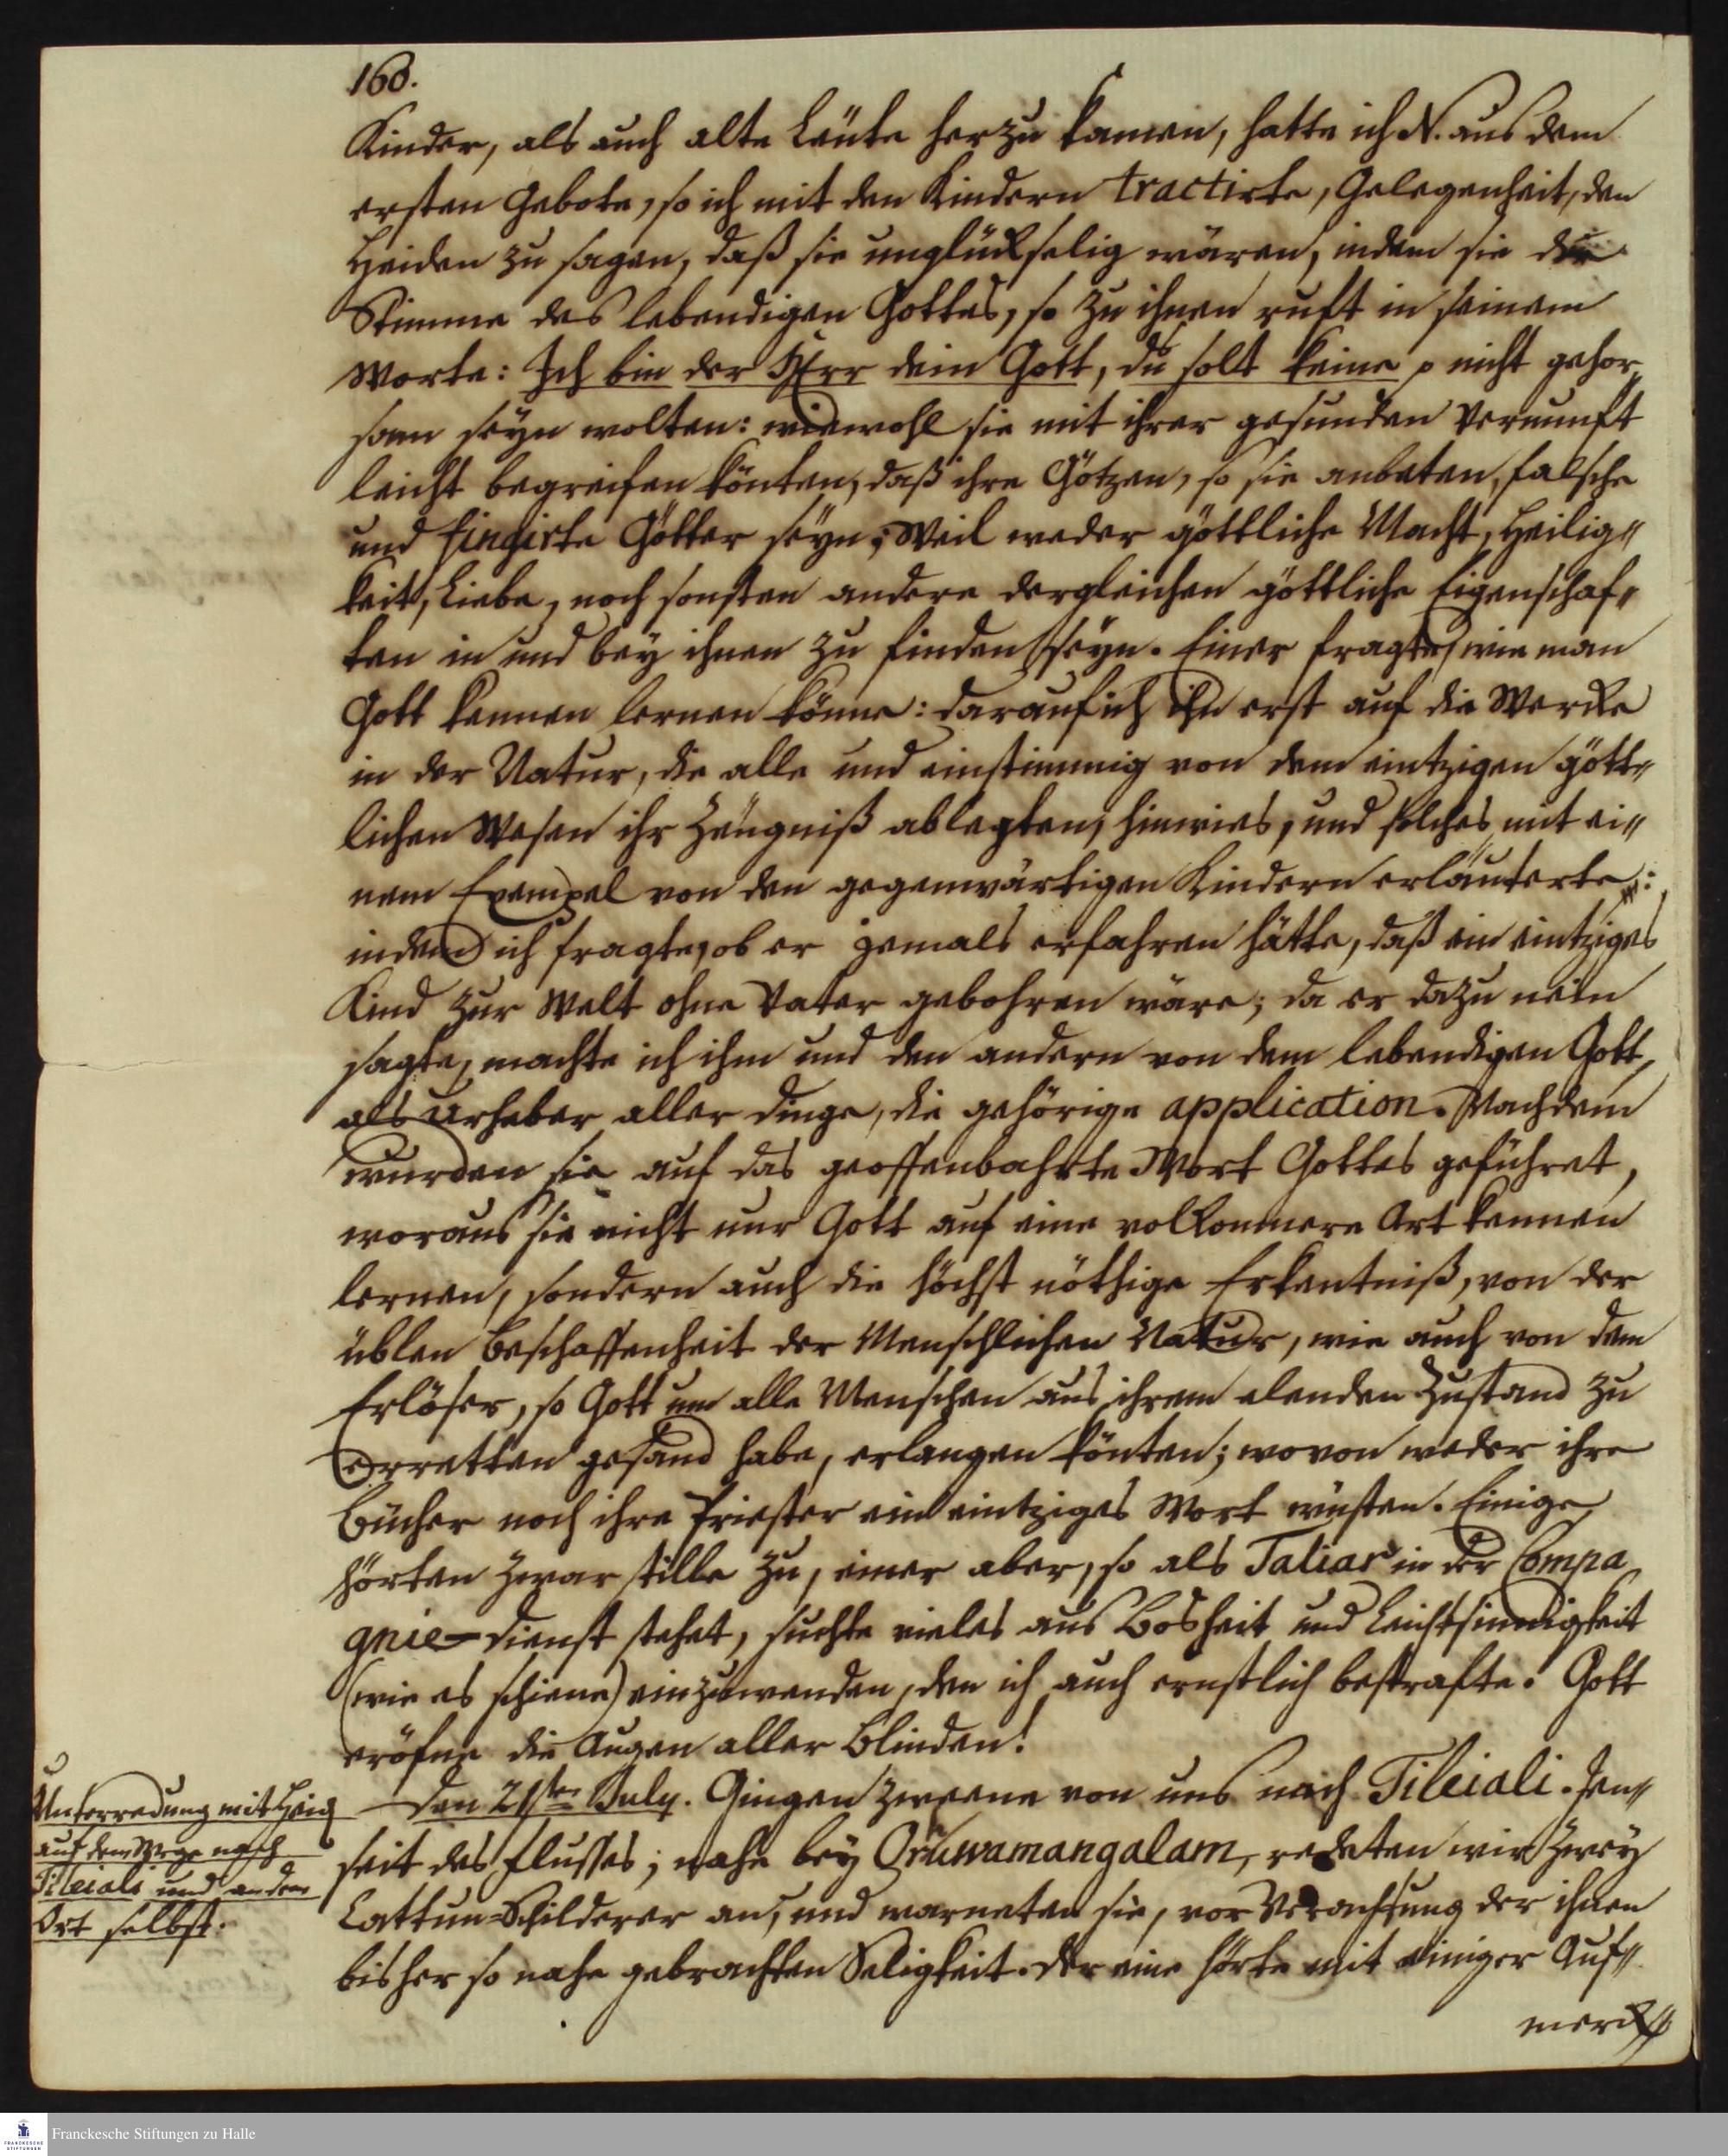 160.
Kinder, als auch alte Leüte herzu kamen, hatte ich N. aus dem
ersten Gebote, so ich mit den Kindern tractirte, Gelegenheit, den
Heiden zu sagen, daß sie unglückselig wären, indem sie die
Stimme des lebendigen Gottes, so zu ihnen ruft in seinem
Worte: Ich bin der Herr dein Gott, du solt keine p nicht gehor„
sam seyn wolten: wiewohl sie mit ihrer gesunden Vernunft
leicht begreifen könten, daß ihre Götzen, so sie anbeten, falsche
und fingirte Götter seyn; Weil weder göttliche Macht, Heilig„
keit, Liebe, noch sonsten andere dergleichen göttliche Eigenschaf„
ten in und bey ihnen zu finden seyn. Einer fragte, wie man
Gott kennen lernen könne: darauf ich ihn erst auf die Wercke
in der Natur, die alle und einstimmig von dem eintzigen gött„
lichen Wesen ihr Zeügniß ablegten, hinwies, und solches mit ei„
nem Exempel von den gegenwärtigen Kindern erläuterte:
indem ich fragte, ob er jemals erfahren hätte, daß ein eintziges
Kind zur Welt ohne Vater gebohren wäre; da er dazu nein
sagte, machte ich ihm und den andern von dem lebendigen Gott,
als Urheber aller dinge, die gehörige application. Nachdem
wurden sie auf das geoffenbahrte Wort Gottes geführet,
woraus sie nicht nur Gott auf eine vollkommere Art kennen
lernen, sondern auch die höchst nöthige Erkentniß, von der
üblen Beschaffenheit der Menschlichen Natur, wie auch von dem
Erlöser, so Gott um alle Menschen aus ihrem elenden Zustand zu
erretten gesand habe, erlangen könten; wovon weder ihre
Bücher noch ihre Priester ein eintziges Wort wüsten. Einige
hörten zwar stille zu, einer aber, so als Taliar in der Compa„
gnie-dienst stehet, suchte vieles aus Bosheit und Leichtsinnigkeit
(wie es schiene) einzuwenden, den ich auch ernstlich bestrafte. Gott
eröfne die Augen aller Blinden!
Unterredung mit Heid
auf dem Wege nach
Tileiali und an dem
Ort selbst.
den 21ten July. Gingen zweene von uns nach Tileiali. Jen„
seit des Flusses, nahe bey Oruwamangalam, redeten wir zwey
Cattun-Schilderer an, und warneten sie, vor Verachtung der ihnen
bisher so nahe gebrachten Seligkeit. der eine hörte mit einiger Auf„
merck„
Franckesche Stiftungen zu Halle
FRANCKESCHE
STIFTUNGEN